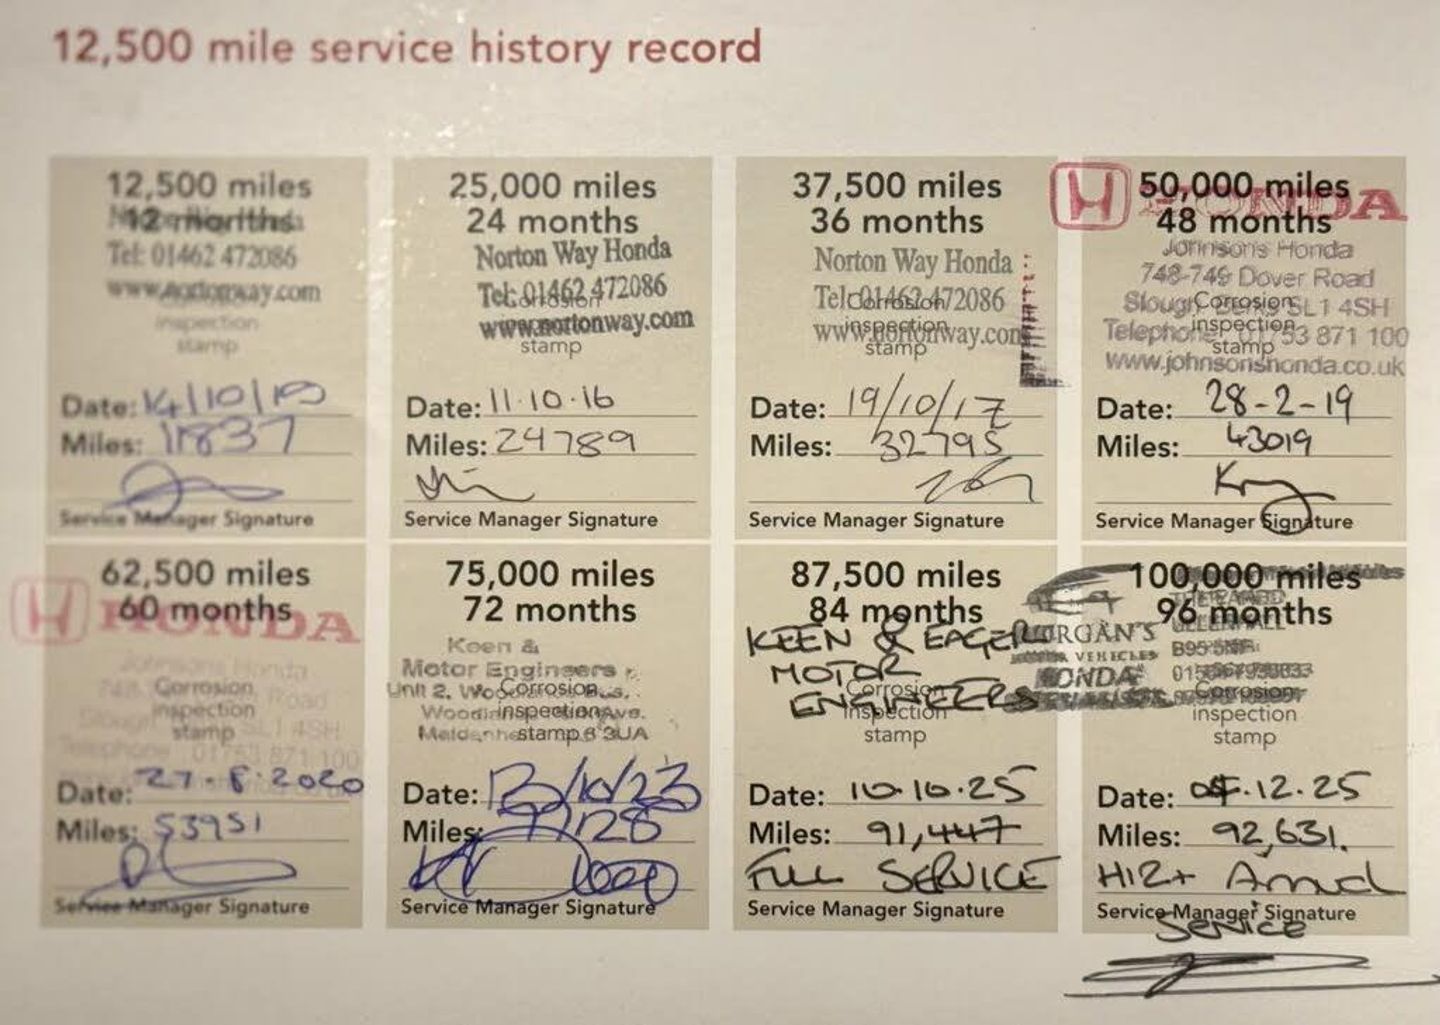 12,500 mile service history record
12,500 miles
12 months
Tel: 01462 472086
www.nortonway.com
inspection
stamp
Date: 14/10/15
Miles: 11837
Service Manager Signature
25,000 miles
24 months
Norton Way Honda
Tel: 01462 472086
Corrosion
www.nortonway.com
stamp
Date: 11.10.16
Miles: 24789
Service Manager Signature
37,500 miles
36 months
Norton Way Honda
Tel: 01462 472086
Corrosion
inspection
www.nortonway.com
stamp
Date: 19/10/17
Miles: 32795
Service Manager Signature
50,000 miles
HONDA
48 months
Johnsons Honda
748-749 Dover Road
Slough Berks SL1 4SH
Corrosion
inspection
Telephone 01753 871 100
stamp
www.johnsonshonda.co.uk
Date: 28-2-19
Miles: 43019
Service Manager Signature
62,500 miles
60 months
HONDA
Johnsons Honda
Corrosion
Road
inspection
SL1 4SH
stamp
Telephone 01753 871 100
Date: 27.8.2020
Miles: 53951
Service Manager Signature
75,000 miles
72 months
Keen &
Motor Engineers
Unit 2,
Corrosion
inspection
Ave.
stamp
3UA
Date: 13/10/23
Miles: 77128
Service Manager Signature
87,500 miles
84 months
KEEN & EAGER
MOTOR
ENGINEERS
Corrosion
inspection
stamp
Date: 10.10.25
Miles: 91,447
FULL SERVICE
Service Manager Signature
100,000 miles
96 months
MORGAN'S
VEHICLES
HONDA
B95
Corrosion
inspection
stamp
Date: .12.25
Miles: 92,631.
Annual
Service Manager Signature
Service